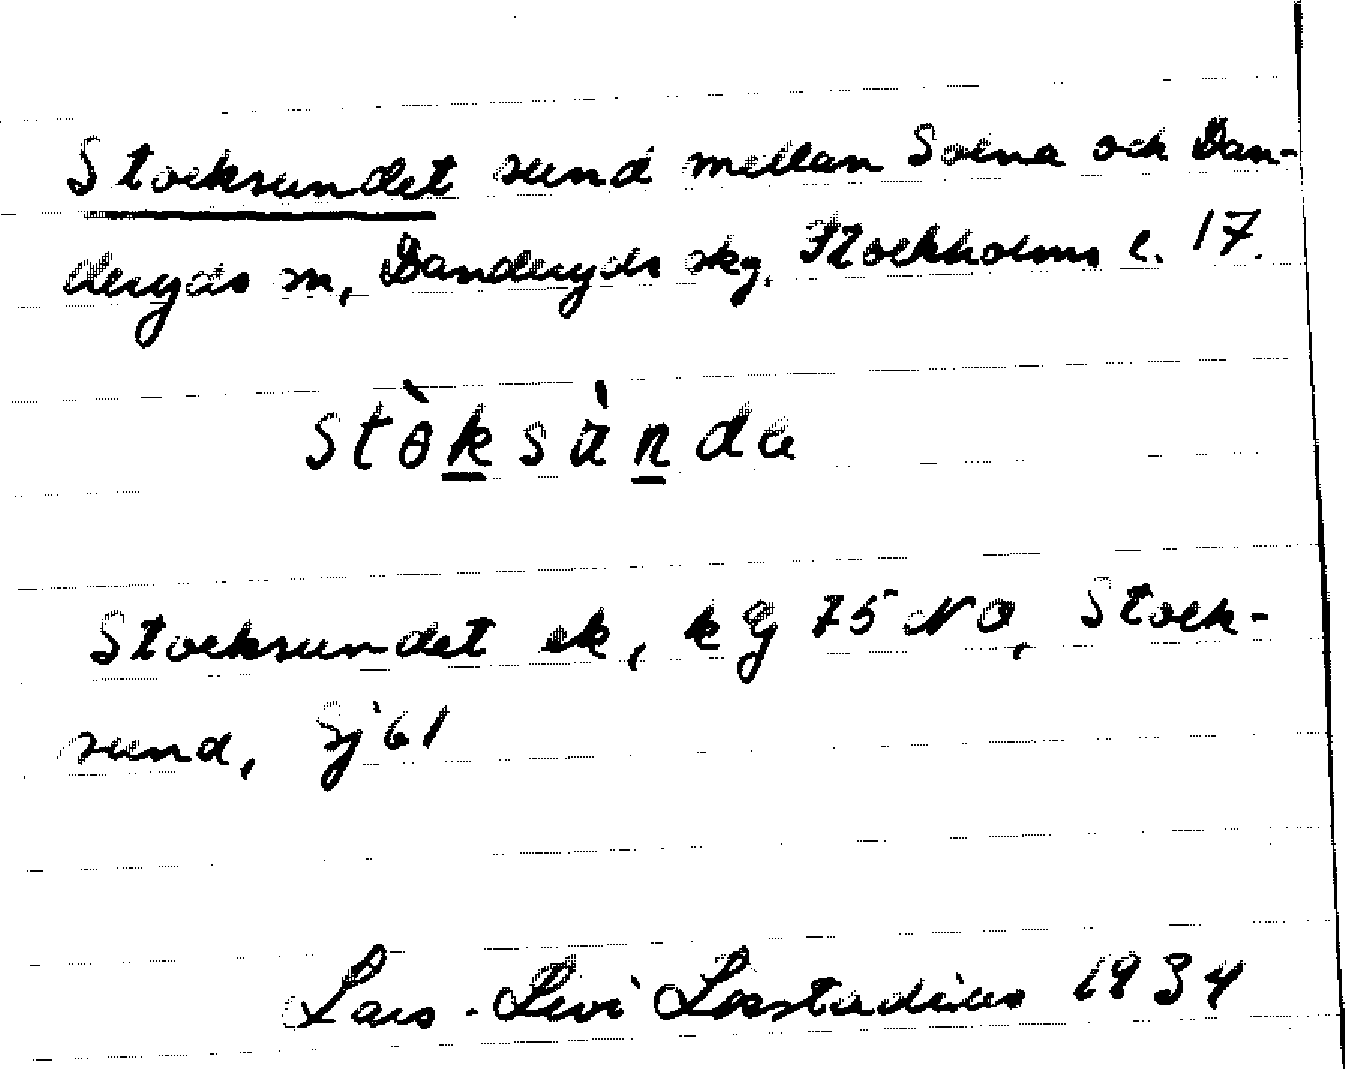 Stocksundet sund mellan Solna och Dan-
deryds sn, Danderyds skg, Stockholms l. 17.
stòksùnda
Stocksundet ek, kG 75 NO, Stock-
sund, Sj 61
Lars-Levi Læstadius 1934